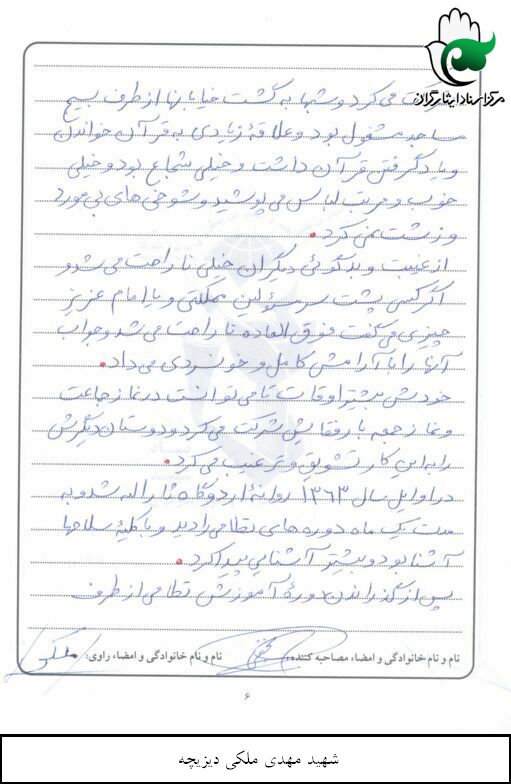 مرکز اسناد ایثارگران
شرکت می‌کرد و شبها به گشت خیابانها از طرف بسیج
مساجد مشغول بود و علاقهٔ زیادی به قرآن خواندن
و یاد گرفتن قرآن داشت و خیلی شجاع بود و خیلی
خوب و مرتب لباس می‌پوشید و شوخی‌های بی‌مورد
و زشت نمی‌کرد.
از غیبت و بدگوئی دیگران خیلی ناراحت می‌شد و
اگر کسی پشت سر مسئولین مملکتی و یا امام عزیز
چیزی می‌گفت فوق العاده ناراحت می‌شد و جواب
آنها را با آرامش کامل و خونسردی می‌داد.
خودش بیشتر اوقات تا می‌توانست در نماز جماعت
و نماز جمعه با رفقایش شرکت می‌کرد و دوستان دیگرش
را به این کار تشویق و ترغیب می‌کرد.
در اوایل سال ۱۳۶۳ روانهٔ اردوگاه ثارالله شد و به
مدت یک ماه دوره‌های نظامی را دید و با کلیهٔ سلاحها
آشنا بود و بیشتر آشنایی پیدا کرد.
پس از گذراندن دورهٔ آموزش نظامی از طرف
نام و نام خانوادگی و امضاء مصاحبه کننده: نام و نام خانوادگی و امضاء راوی: ملکی
۶
شهید مهدی ملکی دیزیچه